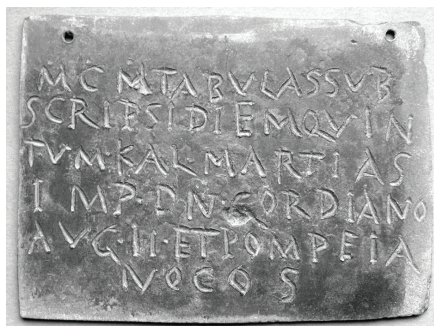 MCMTABVLASSVB
SCRIPSIDIEMQVIN
TVM·KAL·MARTIAS
IMP·D·N·GORDIANO
AVG·II·ETPOMPEIA
NOCOS